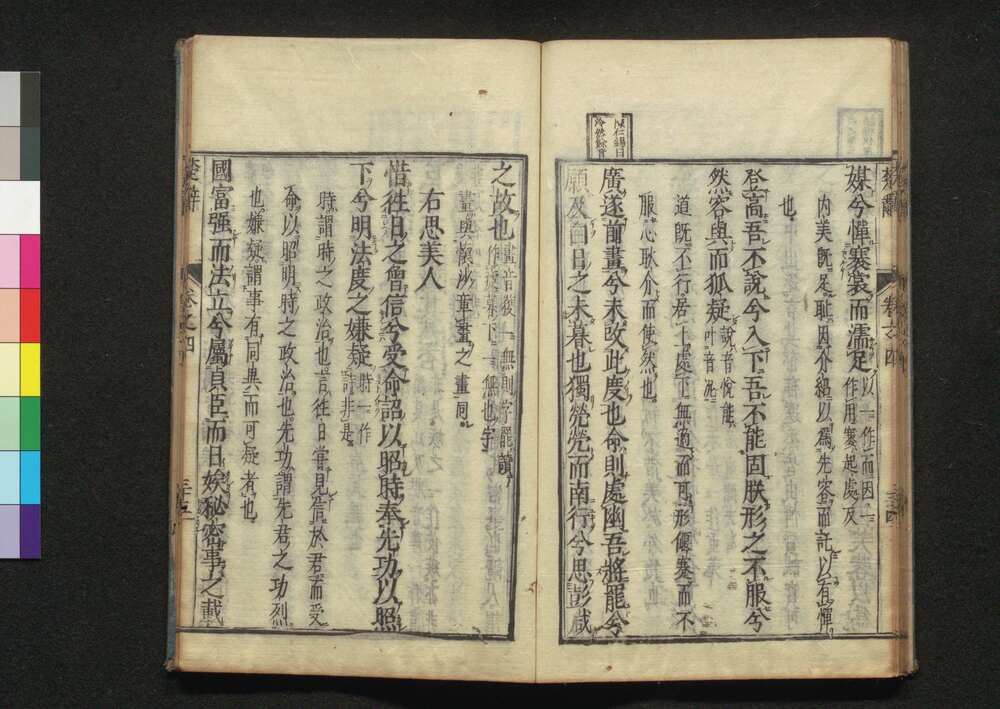 媒兮憚褰裳而濡足以一作而因一作用褰起虔反
內美既足耻因介紹以爲先容而託以有憚
也
登高吾不說兮入下吾不能固朕形之不服兮
然容與而狐疑說音悅能叶音泥
道既不行居上處下無適而可形偃蹇而不
服心耿介而使然也
廣遂前畫兮未改此度也命則處幽吾將罷兮
願及白日之未暮也獨煢煢而南行兮思彭咸
之故也畫音獲一無則字罷讀作疲暮下一無也字
畫與懷沙章畫之畫同
右思美人
惜往日之曾信兮受命詔以昭時奉先功以照
下兮明法度之嫌疑時一作詩非是
時謂時之政治也言往日嘗見信於君而受
命以昭明時之政治也先功謂先君之功烈
也嫌疑謂事有同異而可疑者也
國富强而法立兮屬貞臣而日娭秘密事之載
楚辭
卷之四
三十五